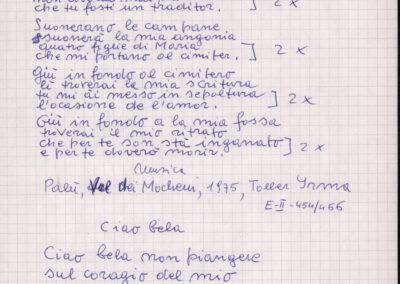 che tu fosti un traditor. ] 2 x
Suonerano le campane
suonerà la mia angonia
quatro figlie di Maria
che mi portano al cimiter. ] 2 x
Giù in fondo al cimitero
li troverai la mia scritura
tu mi ai messo in sepoltura
l'ocasione de l'amor. ] 2 x
Giù in fondo a la mia fossa
troverai il mio ritrato
che per te son stà inganato
e per te doverò morir. ] 2 x
Musica
Palù, Val dei Mocheni, 1975, Toller Irma
E-II-454/466
Ciao bela
Ciao bela non piangere
sul coragio del mio